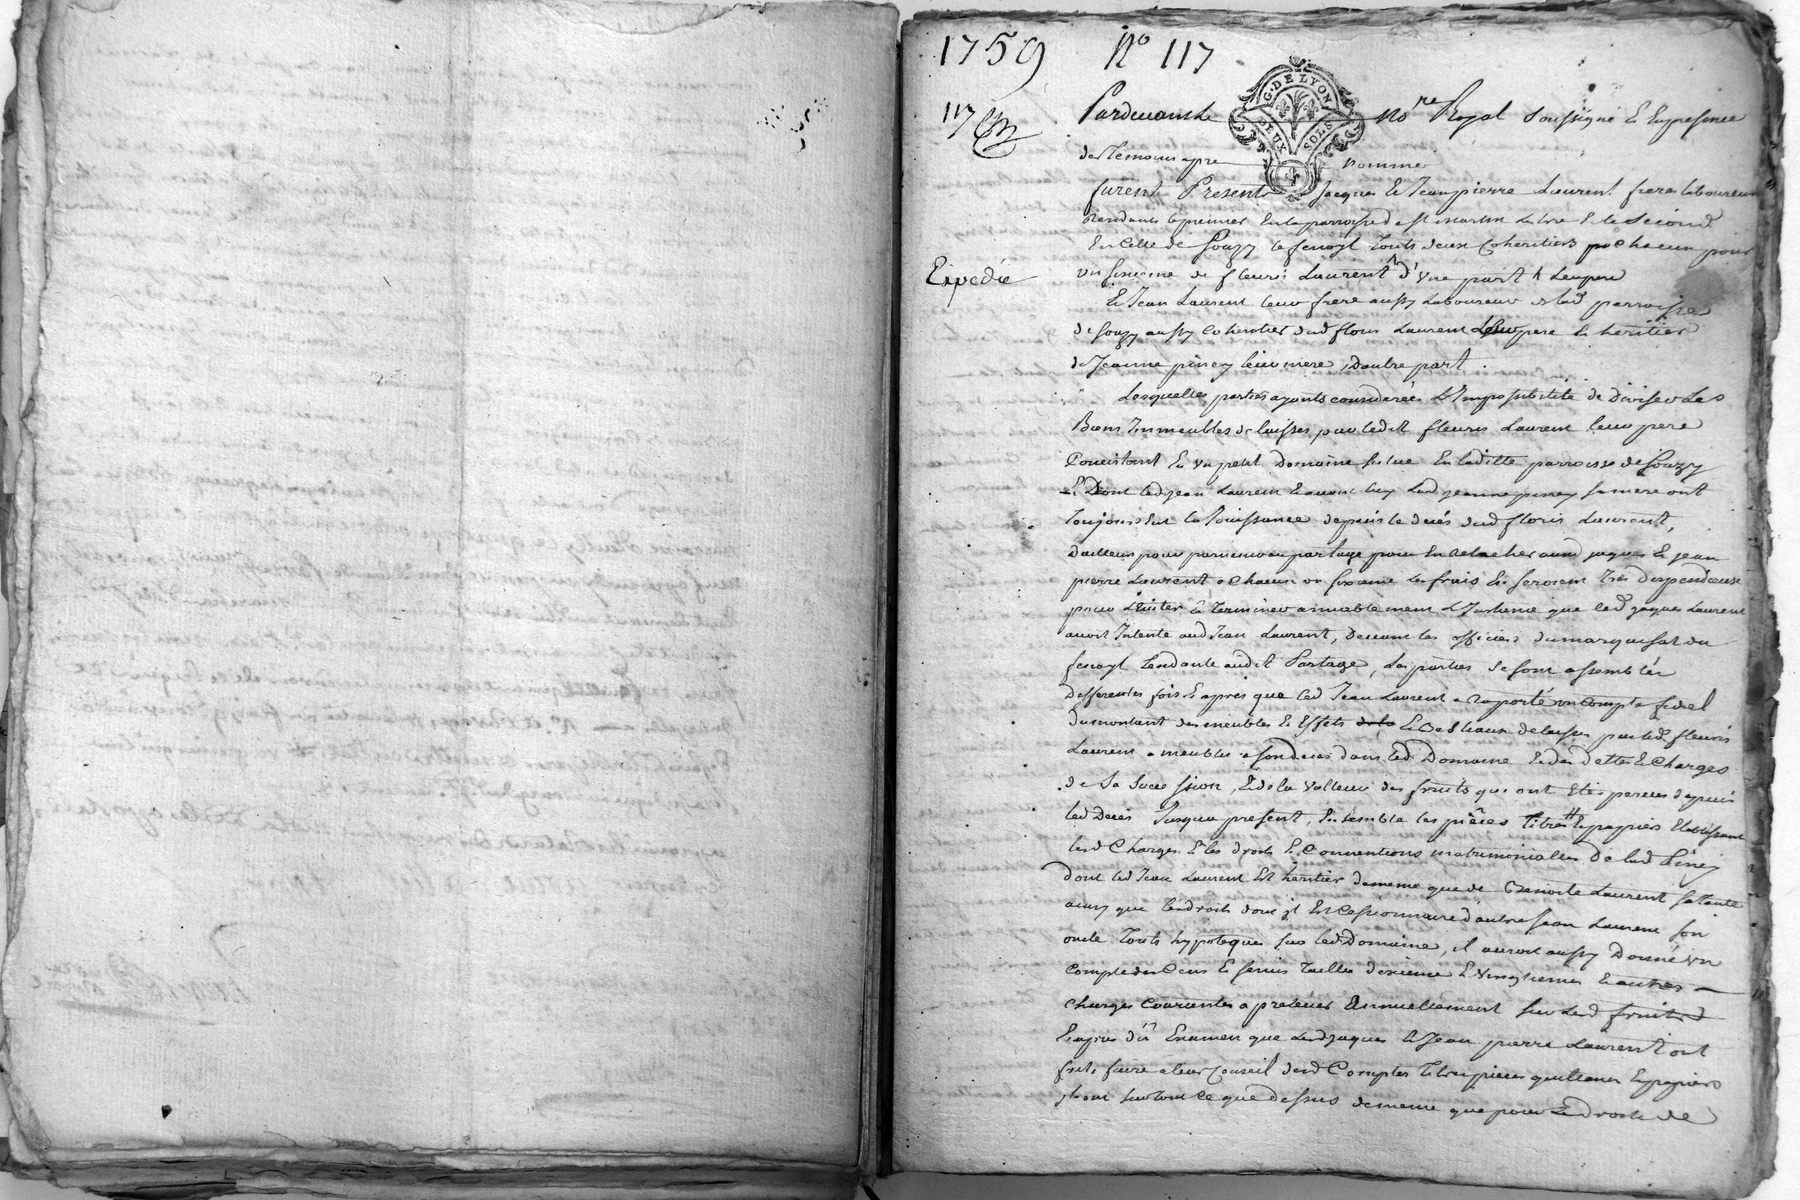 1759 No 117
117
G. DE LYON
DEUX SOLS
Pardevant le no.re Royal soussigné & En presence
des Temoins apres nommé
furent Presents Jacques & Jean pierre Laurent freres laboureurs
Residants le premier En la parroisse de st martin La & le second
En Celle de Souzy Touts deux Coheritiers pr Chacun pour
un sixieme de fleuris Laurent d'une part Leur pere
Expediée
& Jean Laurent leur frere aussy Laboureur de lad parroisse
de Souzy aussy Coheritier dud floris Laurent Leur pere & heritier
de Jeanne piney leur mere, Dautre part.
Lesquelles parties ayants considerées L'Impossibilité de Diviser Les
Biens Immeubles delaissés par ledit fleuris Laurent leur pere
Consistant En un petit Domaine situé En laditte parroisse de Souzy
& Dont led Jean Laurent & avant luy Lad Jeanne piney sa mere ont
Toujours Eut la Jouissance depuis le decés dud floris Laurent,
Dailleurs pour parvenir au partage pour En relacher auxd Jaques & Jean
pierre Laurent a Chacun un sixieme Les frais En seroient Trés Dispendieux
pour Eviter & Terminer aimablement L'Instance que led Jaques Laurent
avoit Intenté aud Jean Laurent, Devant les officiers du marquisat du
fenoyl Tendante audit Partage, Les parties se sont assemblés
Differentes fois & apres que led Jean Laurent a raporté un Compte fidel
Du montant des meubles & Effets & Bestiaux delaissés par led fleuris
Laurent a meubles dans led Domaine & des dettes & Charges
de Sa Succession, & de la Valleur des fruits qui ont Etés perceus depuis
led Decés Jusqua present, Ensemble les pièces Titres & papiers Etablissant
lesd Charges & les droits & Conventions matrimonialles De lad Piney
Dont led Jean Laurent Est héritier de meme que de Benoite Laurent sa Tante
ainsy que les droits dont jl Est Cessionnaire d'autre Jean Laurent son
oncle Touts hypoteques sur led Domaine, il auroit aussy Donné un
Compte des Cens & servis Tailles dixieme & vingtiemes & autres
Charges Courantes a prelever Annuellement sur Lesd fruits
& apres d'un Examen que Lesd Jaques & Jean pierre Laurent ont
fait faire a leur Conseil desd Comptes Titres pieces quittances & papiers
sur tout Ce que dessus de meme que pour Les droits de